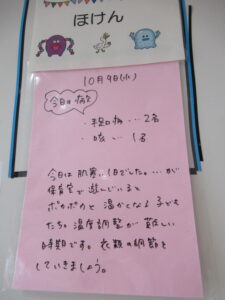 ほけん
10月9日(水)
今日の病欠
・手足口病…2名
・咳…1名
今日は肌寒い1日でした。…が
保育室で遊んでいると
ポカポカと温かくなる子ども
たち。温度調整が難しい
時期です。衣類の調節を
していきましょう。